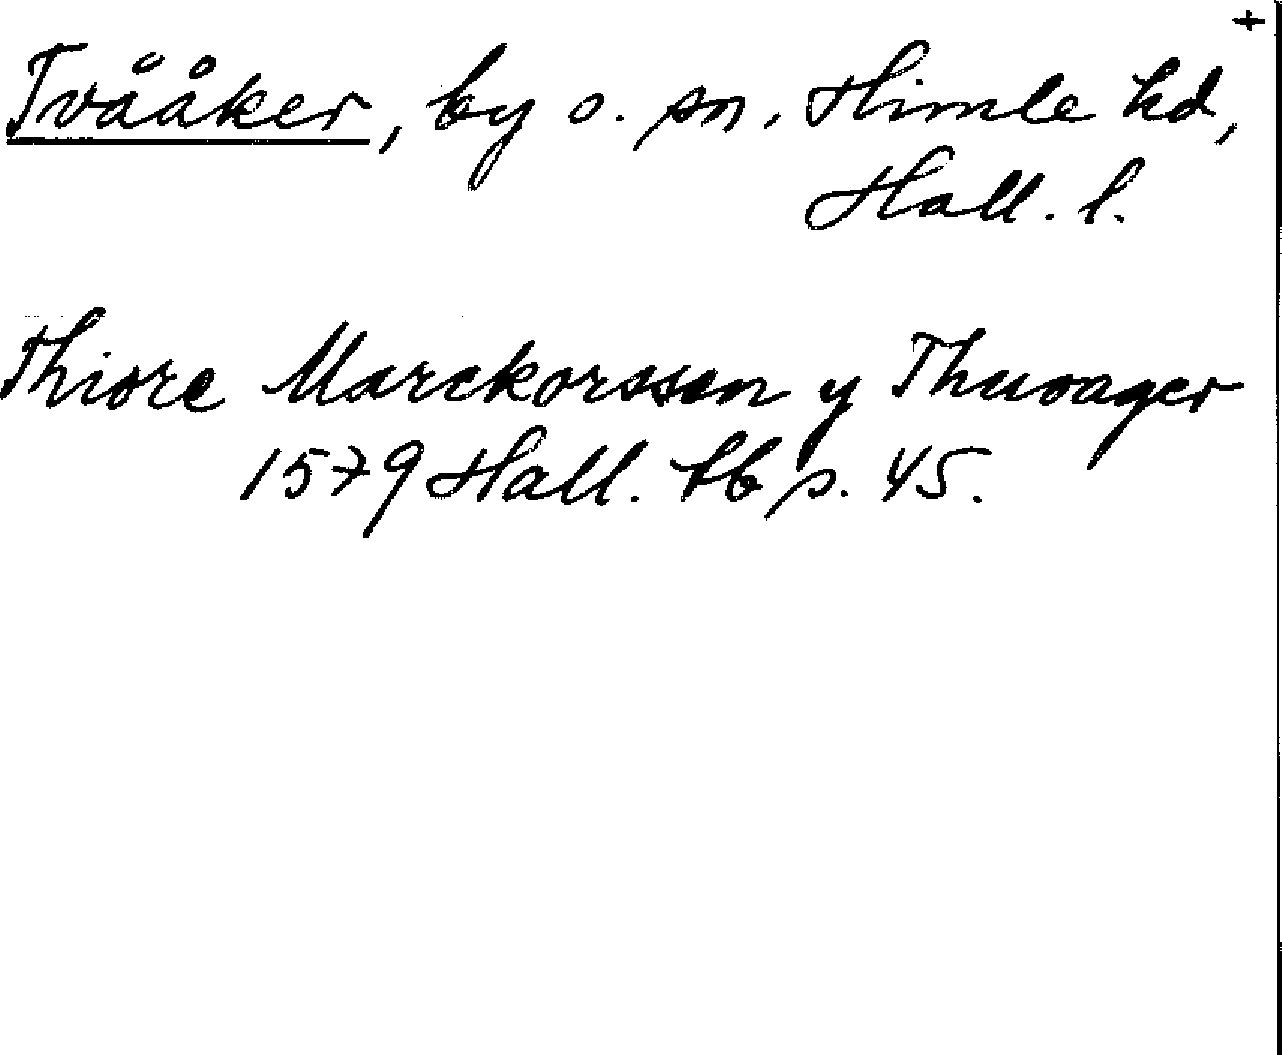 +
Tvååker, by o. sn, Himle hd,
Hall. l.
Thiore Marckorssen y Thuoager
1579 Hall. tb s. 45.